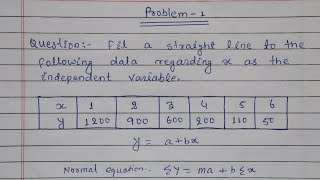 Problem-1
Question:- Fit a straight line to the
following data regarding x as the
independent variable.
x 1 2 3 4 5 6
y 1200 900 600 200 110 50
y = a+bx
Normal equation:- Σy = ma + bΣx